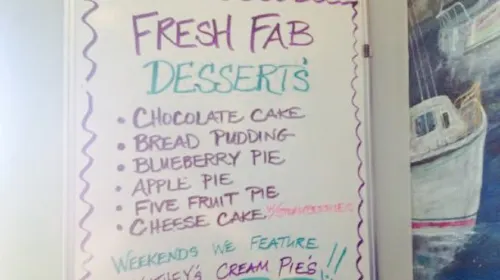 FRESH FAB
DESSERTS
• CHOCOLATE CAKE
• BREAD PUDDING
• BLUEBERRY PIE
• APPLE PIE
• FIVE FRUIT PIE
• CHEESE CAKE
WEEKENDS WE FEATURE
CREAM PIE'S !!